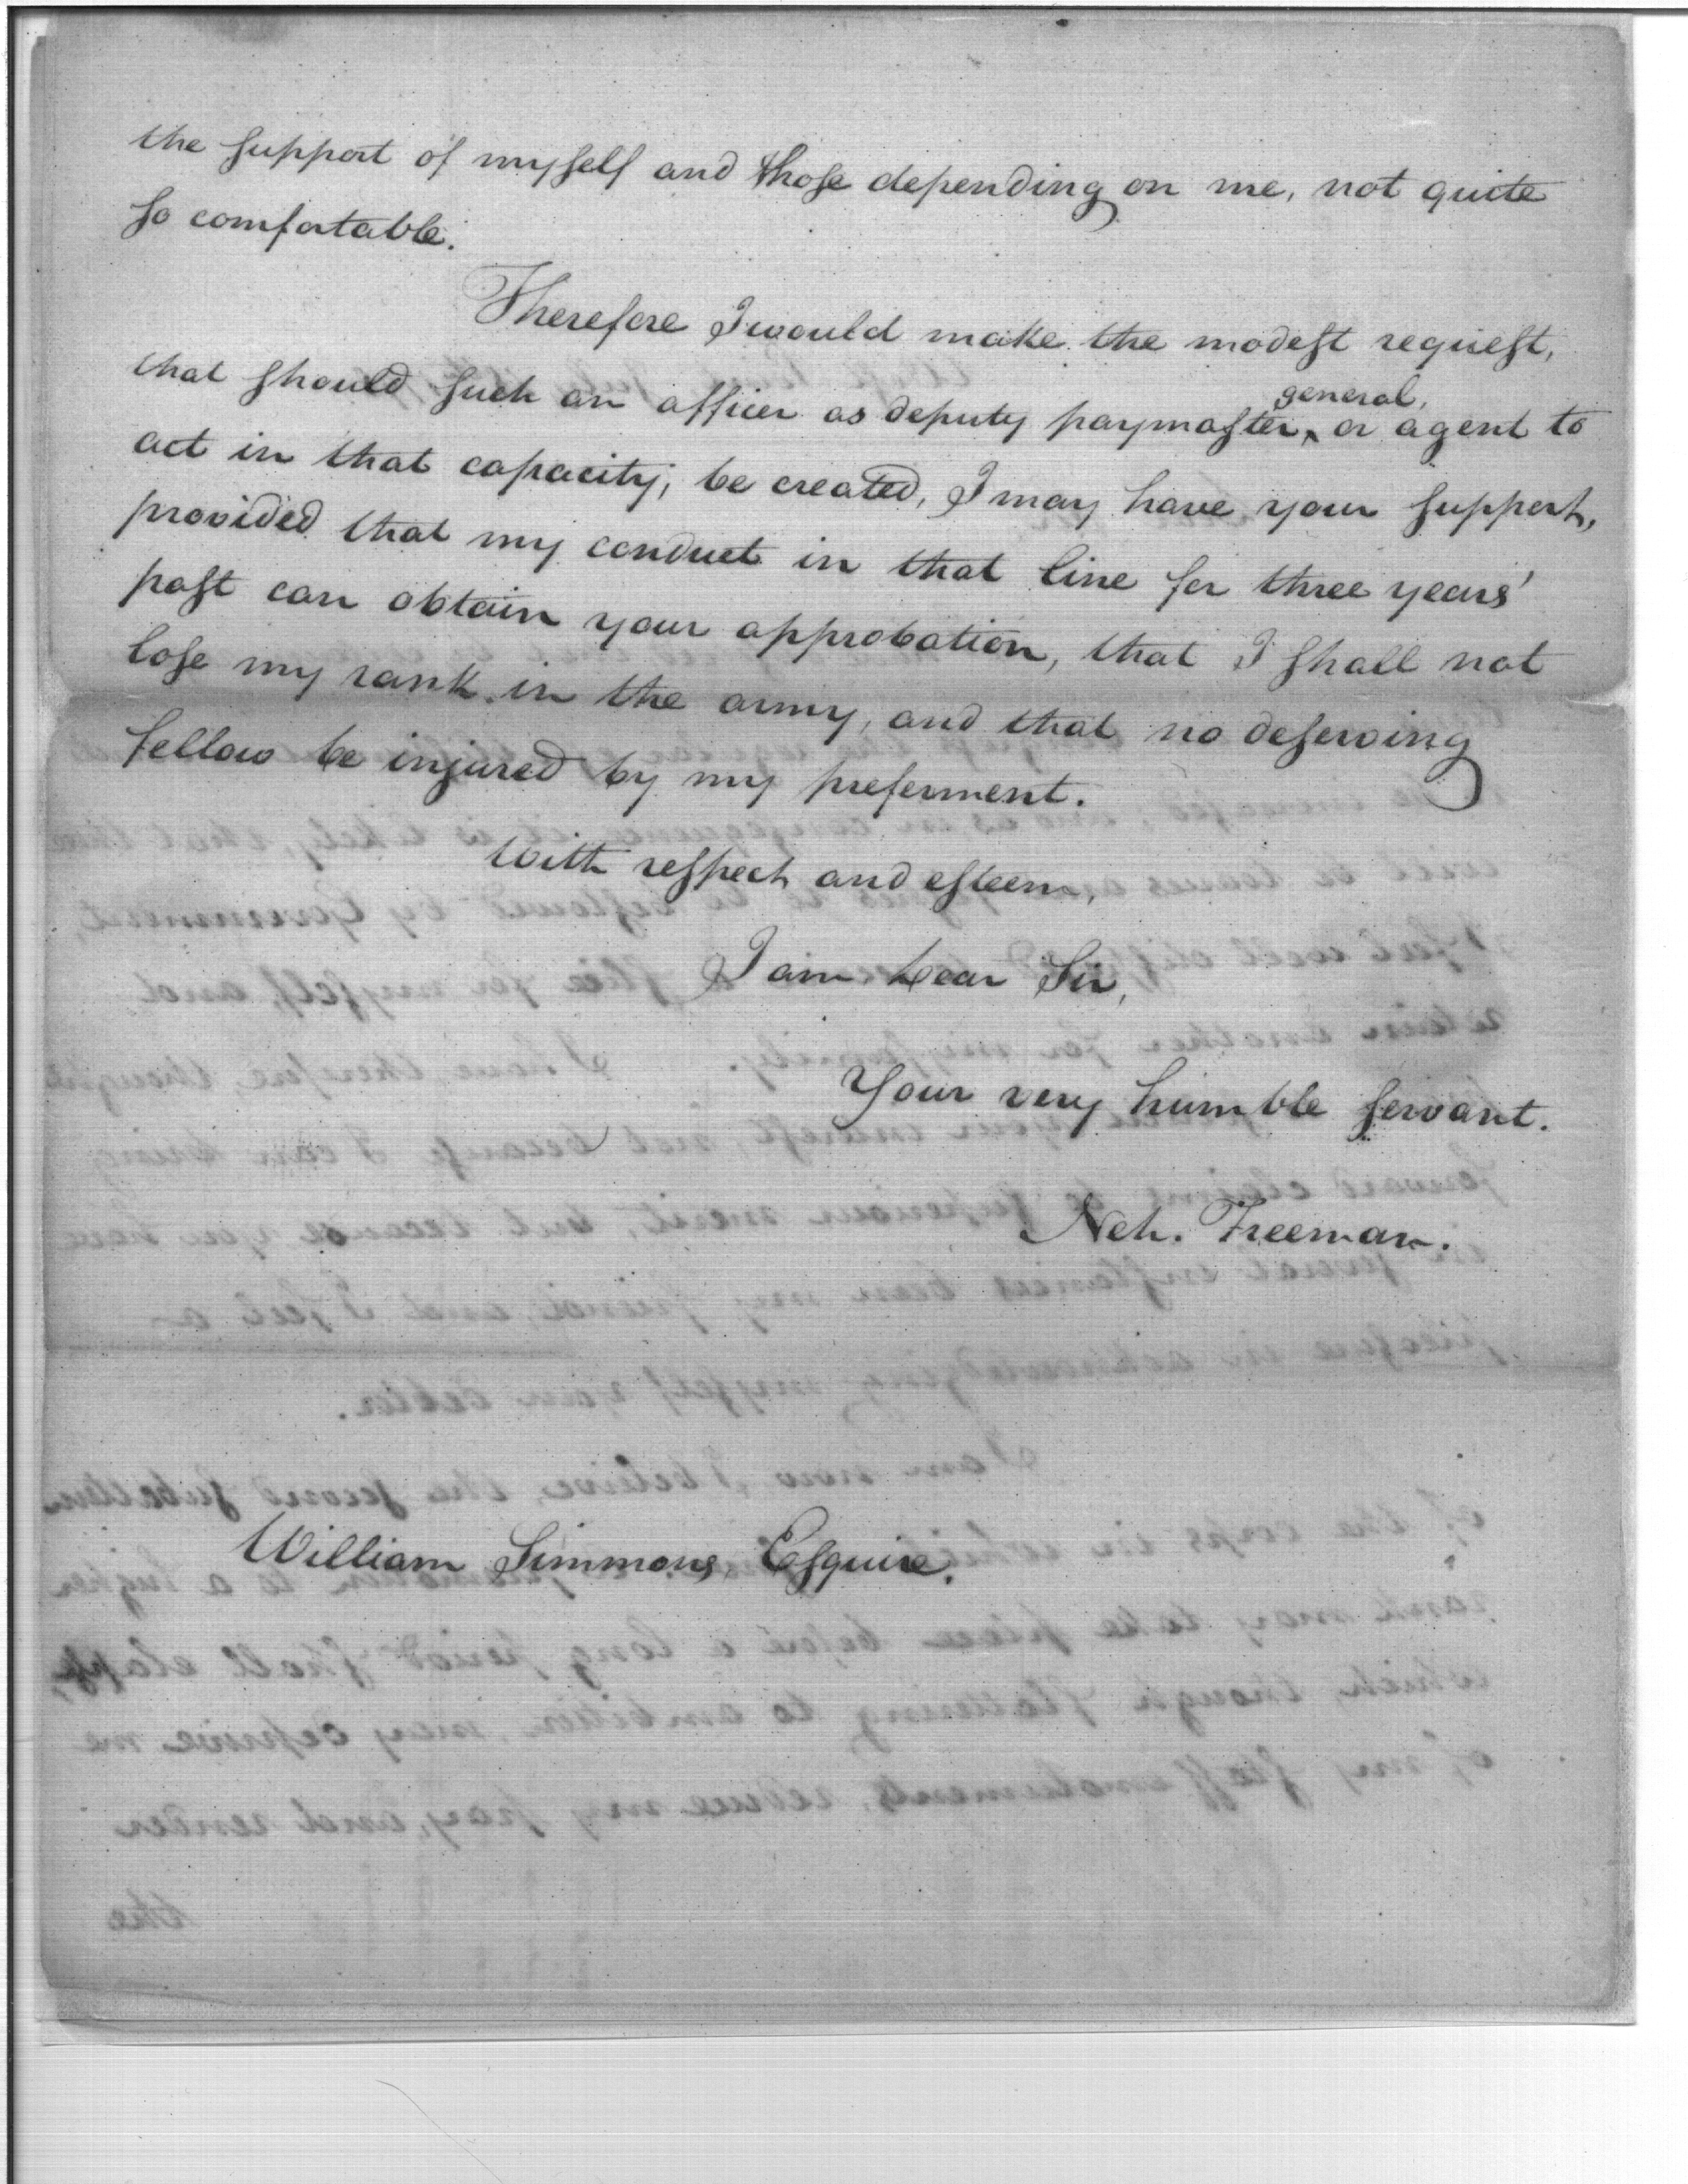 the support of myself and those depending on me, not quite
so comfortable.
Therefore I would make the modest request,
that should such an officer as deputy paymaster general, or agent to
act in that capacity, be created, I may have your support,
provided that my conduct in that line for three years'
past can obtain your approbation, that I shall not
lose my rank in the army, and that no deserving
fellow be injured by my preferment.
With respect and esteem,
I am, Dear Sir,
Your very humble servant.
Neh. Freeman.
William Simmons, Esquire.